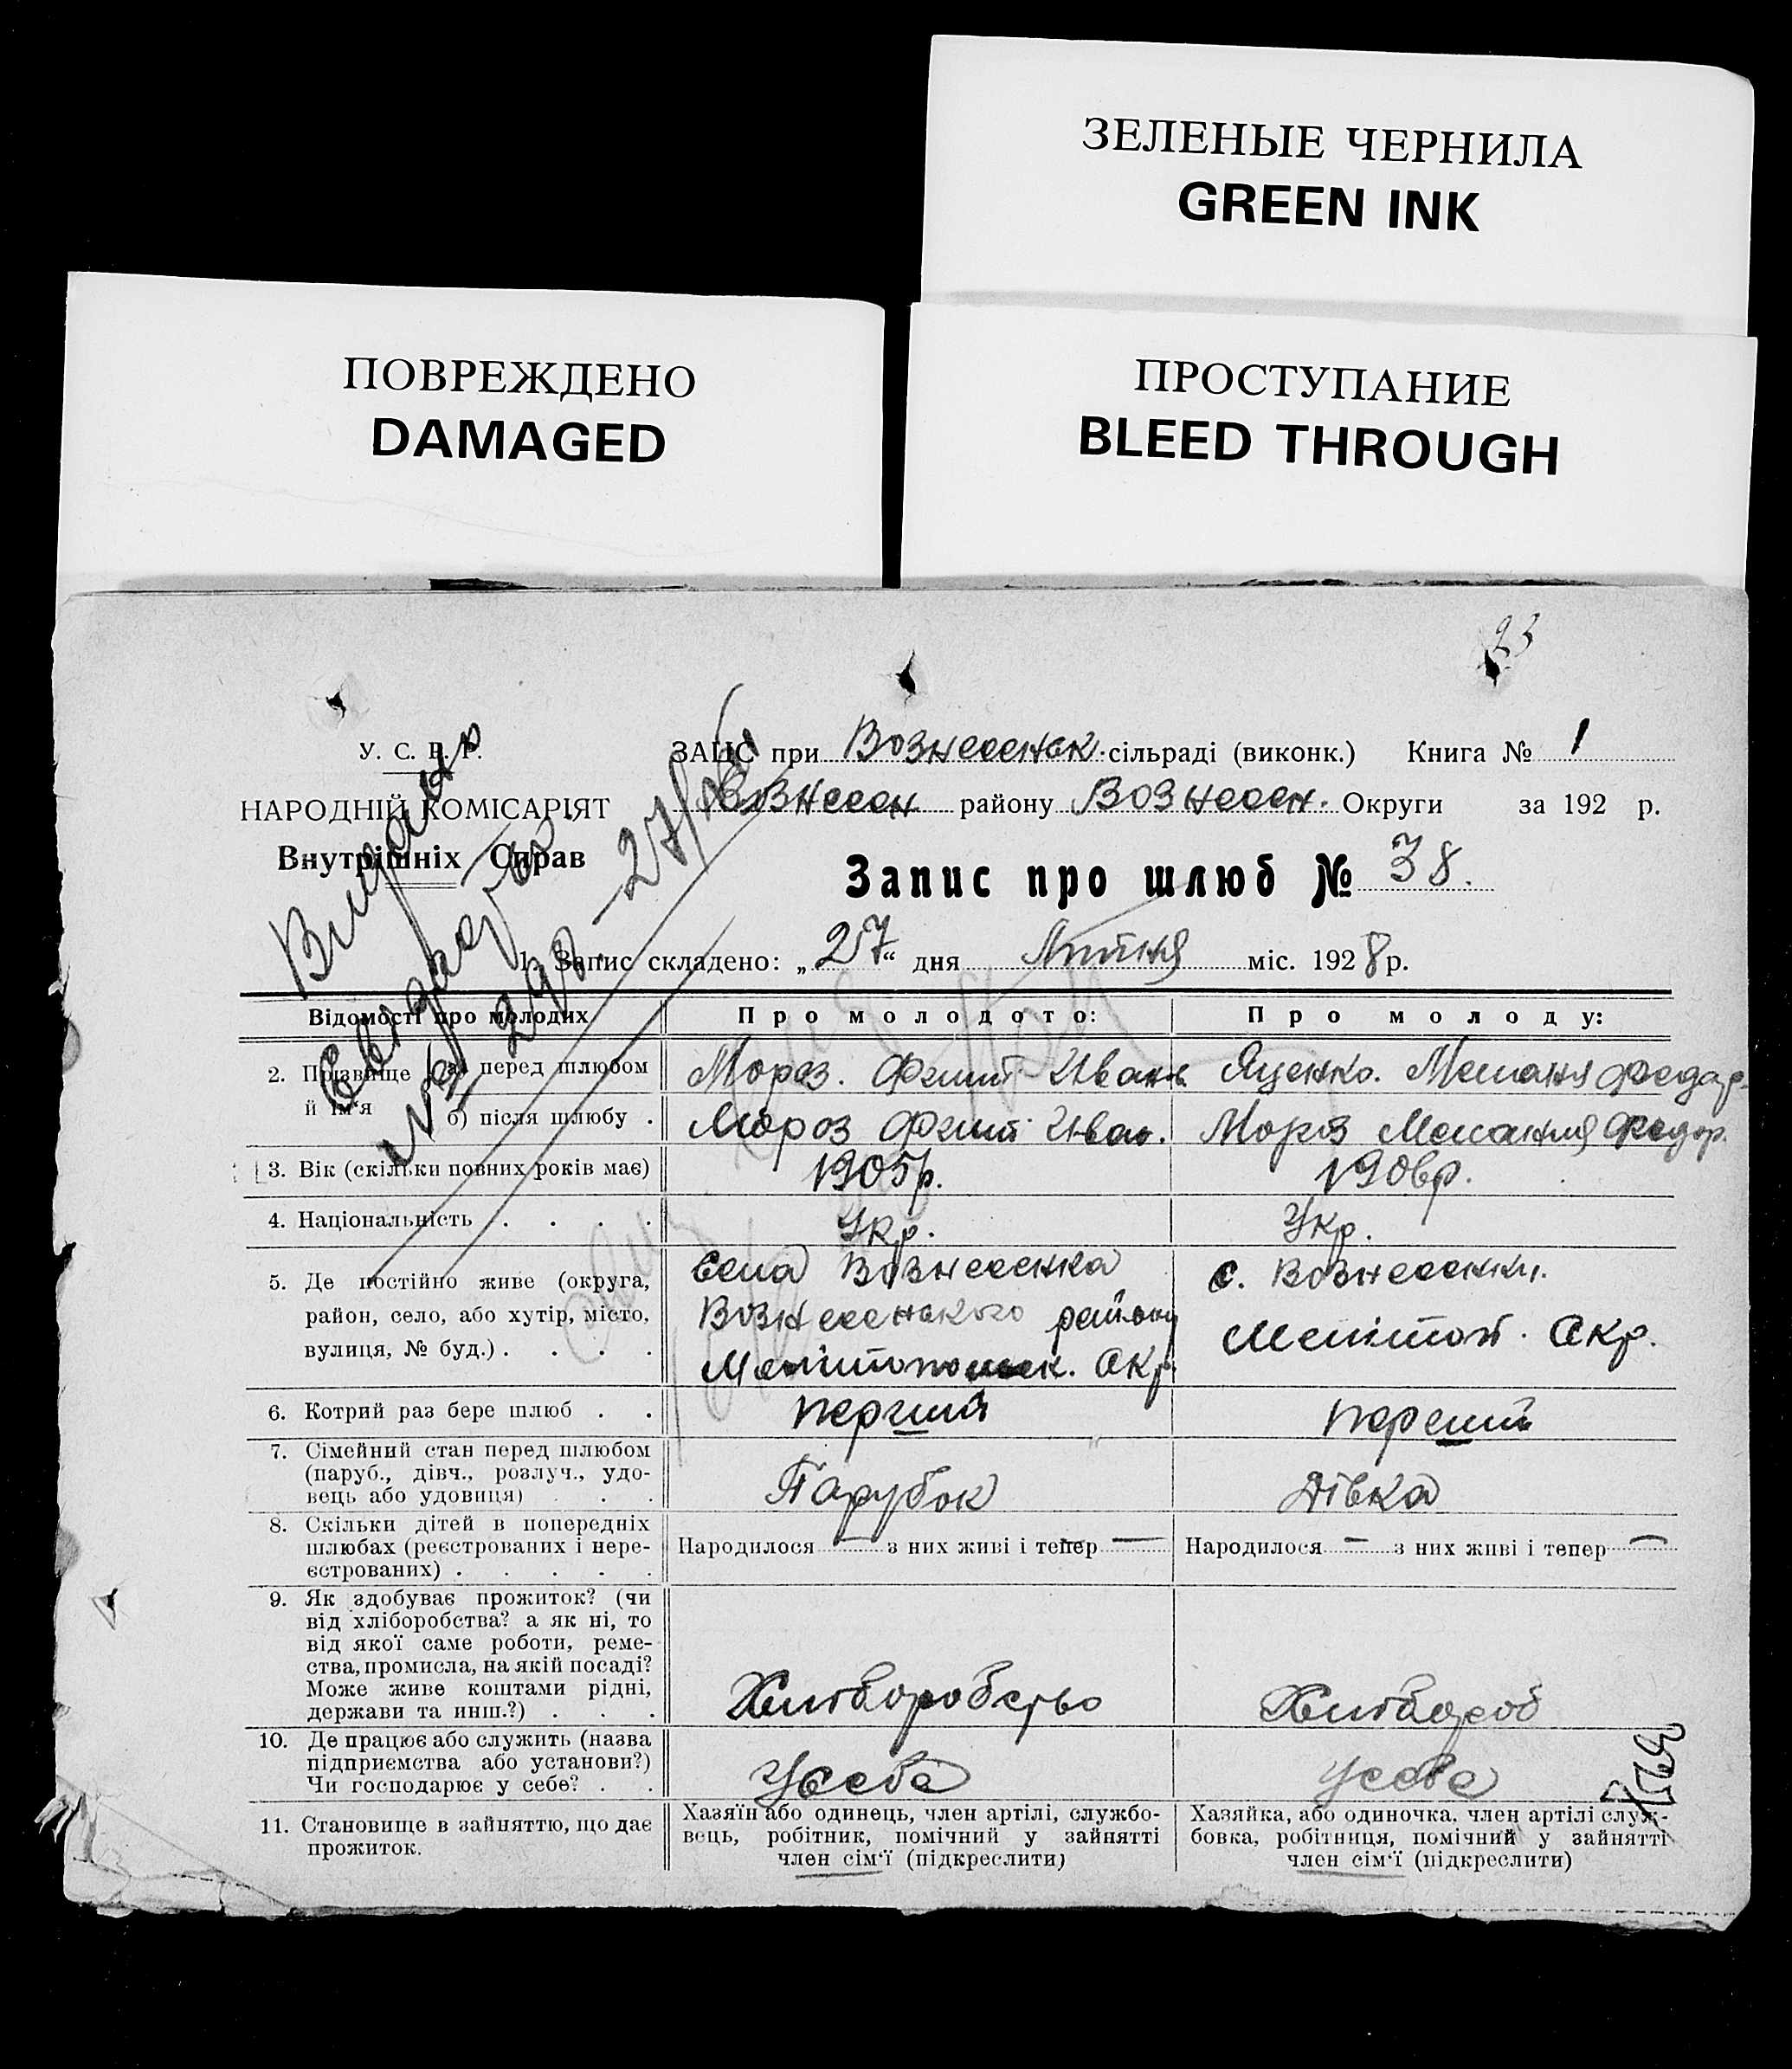 ЗЕЛЕНЫЕ ЧЕРНИЛА
GREEN INK
ПОВРЕЖДЕНО
DAMAGED
ПРОСТУПАНИЕ
BLEED THROUGH
23
У. С. Р. Р.
НАРОДНІЙ КОМІСАРІЯТ
Внутрішніх Справ
ЗАЦС при Вознесенськ. сільраді (виконк.) Книга № 1
Вознесен району Вознесен. Округи за 192 р.
Запис про шлюб № 38.
1. Запис складено: „27“ дня Липня міс. 1928 р.
Видано
№ 298 27/
Відомості про молодих
Про молодого:
Про молоду:
2. Прізвище й ім‘я
а) перед шлюбом
Мороз. Филип Иван.
Яценко. Мелания Федор.
б) після шлюбу .
Мороз Филип Иван.
Мороз Мелания Федор.
3. Вік (скільки повних років має)
1905р.
1906р.
4. Національність . . . .
Укр.
Укр.
5. Де постійно живе (округа,
район, село, або хутір, місто,
вулиця, № буд.) . . . .
Села Вознесенка
Вознесенського району
Мелітопольск. Окр.
с. Вознесенки.
Мелітоп. Окр.
6. Котрий раз бере шлюб . .
перший
перший
7. Сімейний стан перед шлюбом
(паруб., дівч., розлуч., удо-
вець або удовиця) . . .
Парубок
Дівка
8. Скільки дітей в попередніх
шлюбах (реєстрованих і нере-
єстрованих) . . . . .
Народилося — з них живі і тепер —
Народилося — з них живі і тепер —
9. Як здобуває прожиток? (чи
від хліборобства? а як ні, то
від якої саме роботи, реме-
ства, промисла, на якій посаді?
Може живе коштами рідні,
держави та инш.?) . . .
Хліборобство
Хлібороб
10. Де працює або служить (назва
підприємства або установи?)
Чи господарює у себе? . .
Усебе
Усебе
11. Становище в зайняттю, що дає
прожиток.
Хазяїн або одинець, член артілі, службо-
вець, робітник, помічний у зайнятті
член сім‘ї (підкреслити)
Хазяйка, або одиночка, член артілі служ-
бовка, робітниця, помічний у зайнятті
член сім‘ї (підкреслити)